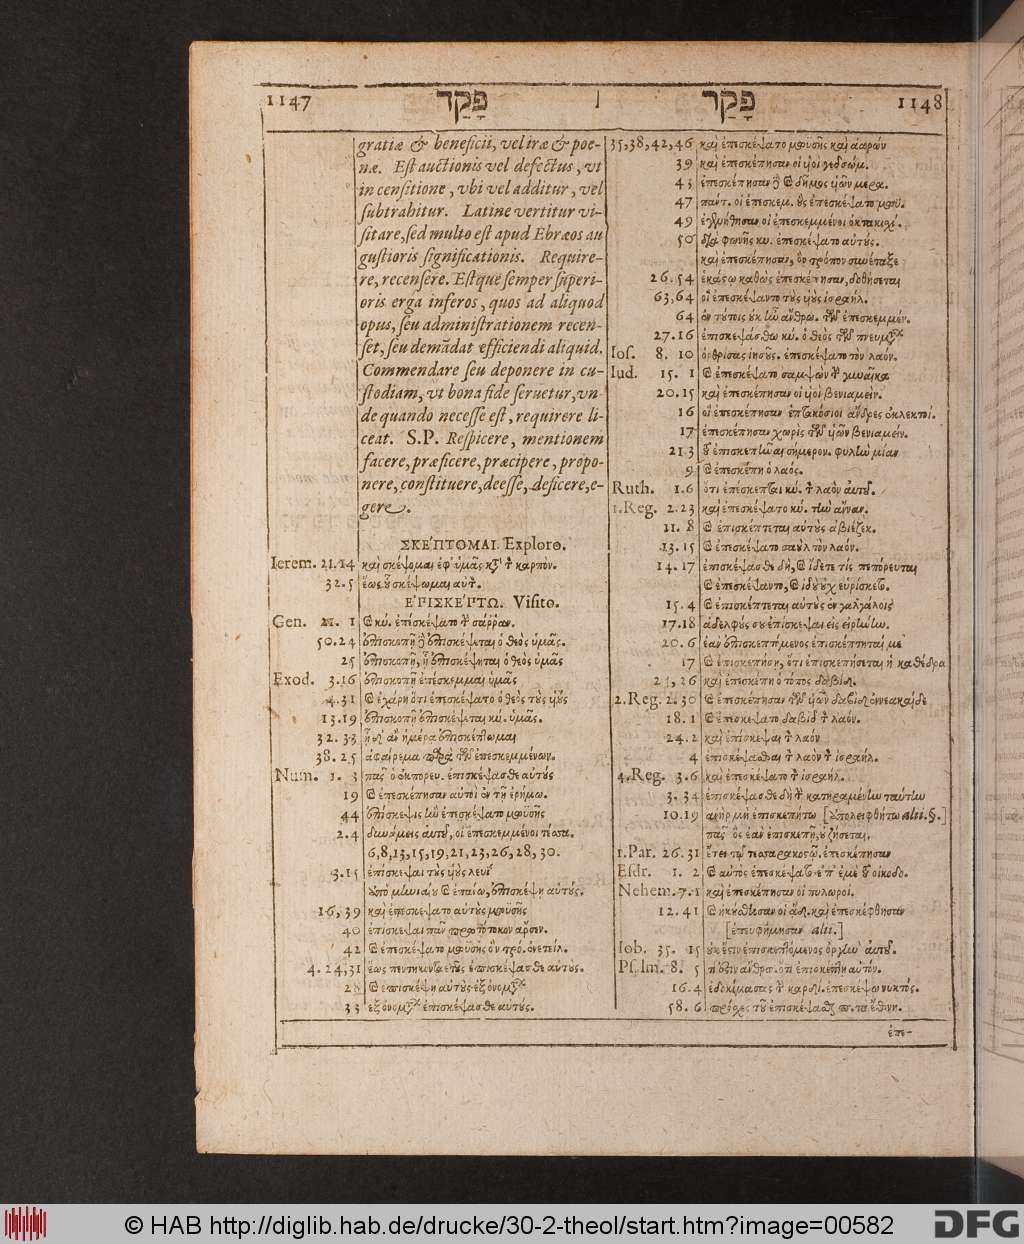 1147 פָּקַד פָּקַד 1148
gratiæ & beneficii, vel iræ & poe-
næ. Est auctionis vel defectus, vt
in censitione, vbi vel additur, vel
subtrahitur. Latine vertitur vi-
sitare, sed multo est apud Ebræos au
gustioris significationis. Require-
re, recensere. Estque semper superi-
oris erga inferos, quos ad aliquod
opus, seu administrationem recen-
set, seu demādat efficiendi aliquid.
Commendare seu deponere in cu-
stodiam, vt bona fide seruetur, vn
de quando necesse est, requirere li-
ceat. S.P. Respicere, mentionem
facere, præficere, præcipere, propo-
nere, constituere, deesse, deficere, e-
gere.
ΣΚΕΠΤΟΜΑΙ. Exploro.
Ierem. 21.14 καὶ σκέψομαι ἐφ' ὑμᾶς καρπόν.
32.5 ἕως οὗ σκέψωμαι
ΕΠΙΣΚΕΠΤΩ. Visito.
Gen. 21. 1 κύ. ἐπέσκέψατο σάῤῥαν.
50.24 ἐπισκοπῇ ἐπισκέψεται ὁ θεὸς ὑμᾶς.
25 ἐπισκοπῇ, ᾗ ἐπισκέψηται ὁ θεὸς ὑμᾶς
Exod. 3.16 ἐπισκοπῇ ἐπέσκεμμαι ὑμᾶς
4.31 ἐχάρη ὅτι ἐπεσκέψατο ὁ θεὸς τοὺς
13.19 ἐπισκοπῇ ἐπισκέψεται κύ. ὑμᾶς.
32. 33 ἡμέρα ἐπισκέπτωμαι
38. 25 ἀφαίρεμα παρὰ τῶν ἐπεσκεμμένων.
Num. 1. 3 πᾶς ὁ ἐκπορευ. ἐπισκέψασθε αὐτοὺς
19 ἐπεσκέπησαν αὐτοὶ ἐν τῇ ἐρήμῳ.
44 ἐπίσκεψις ἐπεσκέψατο μωϋσῆς
2.4 δυνάμεις αὐτοῦ, οἱ ἐπεσκεμμένοι
6,8,13,15,19,21,23,26,28,30.
3.15 ἐπίσκεψαι τοὺς λευΐ
ἀπὸ μηνιαίου ἐπάνω, ἐπισκέψῃ αὐτούς.
16, 39 καὶ ἐπεσκέψατο αὐτοὺς μωϋσῆς
40 ἐπίσκεψαι πᾶν πρωτότοκον ἄρσεν.
42 ἐπεσκέψατο μωϋσῆς ὃν τρό. ἐνετείλ.
4. 24,31 ἕως πεντηκονταετοῦς ἐπισκέψασθε αὐτούς.
ἐπισκέψῃ αὐτοὺς
33 ἐπισκέψασθε αὐτούς.
35,38,42,46 καὶ ἐπεσκέψατο μωϋσῆς καὶ ἀαρών
39 καὶ ἐπεσκέπησαν οἱ υἱοὶ γεδσών.
43 ἐπεσκέπησαν δῆμος υἱῶν μερα.
47 πάντ. οἱ ἐπεσκεμ. οὓς ἐπεσκέψατο μωϋ.
49 οἱ ἐπεσκεμμένοι ὀκτακισχί.
50 διὰ φωνῆς κυ. ἐπεσκέψατο αὐτούς.
καὶ ἐπεσκέπησαν, ὃν τρόπον συνέταξε
26. 54 ἑκάστῳ καθὼς ἐπεσκέπησαν, δοθήσεται
63,64 οἳ ἐπεσκέψαντο τοὺς υἱοὺς ἰσραήλ.
64 ἐν τούτοις οὐκ ἦν ἄνθρω. τῶν ἐπεσκεμμέν.
27.16 ἐπισκεψάσθω κύ. ὁ θεὸς τῶν
Ios. 8. 10 ὀρθρίσας ἰησοῦς. ἐπεσκέψατο τὸν λαόν.
Iud. 15. 1 ἐπεσκέψατο σαμψὼν γυναῖκα
20.15 καὶ ἐπεσκέπησαν οἱ υἱοὶ βενιαμείν.
16 οἳ ἐπεσκέπησαν ἑπτακόσιοι ἄνδρες ἐκλεκτοί.
17 ἐπεσκέπησαν χωρὶς τῶν υἱῶν βενιαμείν.
21.3 ἐπισκεπῆναι σήμερον. φυλὴν μίαν
9 ἐπεσκέπη ὁ λαός.
Ruth. 1.6 ὅτι ἐπέσκεπται κύ. λαὸν αὐτοῦ.
1.Reg. 2.23 καὶ ἐπεσκέψατο κύ. τὴν ἄνναν.
11. 8 ἐπισκέπτεται αὐτοὺς ἀβιέζεκ.
13. 15 ἐπεσκέψατο σαοὺλ τὸν λαόν.
14. 17 ἐπισκέψασθε δὴ, ἴδετε τίς πεπόρευται
ἐπεσκέψαντο, ἰδοὺ οὐχ
15. 4 ἐπισκέπτεται αὐτοὺς ἐν γαλγάλοις
17.18 ἀδελφούς σου ἐπισκέψαι εἰς εἰρήνην.
20.6 ἐὰν ἐπισκεπτόμενος ἐπισκέπτηταί με
17 ἐπισκεπήσῃ, ὅτι ἐπισκεπήσεται ἡ καθέδρα
καὶ ἐπεσκέπη ὁ τόπος δαβίδ.
2.Reg. 2. 30 ἐπεσκέπησαν τῶν υἱῶν δαβὶδ ἐννεακαίδε
18. 1 ἐπεσκέψατο δαβὶδ λαόν.
24. 2 καὶ ἐπίσκεψαι λαόν
4 ἐπισκέψασθαι λαὸν ἰσραήλ.
4.Reg. 3.6 καὶ ἐπεσκέψατο ἰσραήλ.
9. 34 ἐπισκέψασθε δὴ κατηραμένην ταύτην
10.19 ἀνὴρ μὴ ἐπισκεπήτω [ὑπολειφθήτω alii.§.]
πᾶς ὃς ἐὰν ἐπισκεπῇ, οὐ ζήσεται.
1.Par. 26. 31 ἔτει τῷ τεσσαρακοστῷ. ἐπεσκέπησαν
Esdr. 1. 2 αὐτὸς ἐπεσκέψατο ἐπ' ἐμὲ οἰκοδο.
Nehem. 7.1 καὶ ἐπεσκέπησαν οἱ πυλωροί.
12. 41 καὶ ἐπεσκέφθησαν
[ἐπευφήμησαν alii.]
Iob. 35. 15 οὐκ ἔστιν ἐπισκεπτόμενος ὀργὴν αὐτοῦ.
Psalm. 8. 5 ὅτι ἐπισκέπτῃ αὐτόν.
16.4 ἐδοκίμασας καρδί. ἐπεσκέψω νυκτός.
58. 6 πρόσχες τοῦ ἐπισκέψασθαι ἔθνη.
ἐπε-
© HAB http://diglib.hab.de/drucke/30-2-theol/start.htm?image=00582
DFG